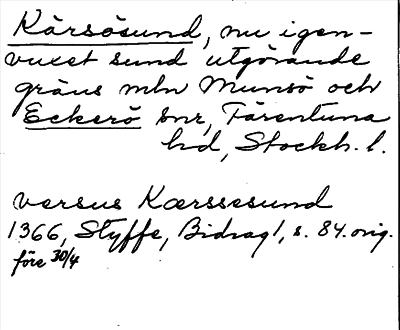 Kärsösund, nu igen-
vuxet sund utgörande
gräns mln Munsö och
Eckerö snr, Färentuna
hd, Stockh. l.
versus Kærssesund
1366, Styffe, Bidrag 1, s. 84. orig.
före 30/4